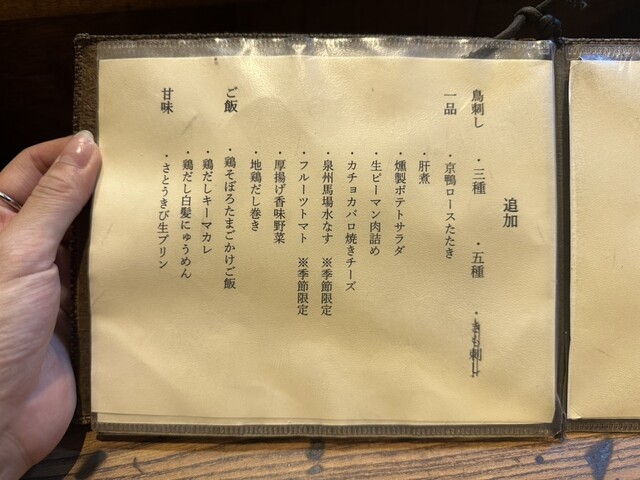 追加
鳥刺し ・三種 ・五種 ・きも刺し
一品 ・京鴨ロースたたき
・肝煮
・燻製ポテトサラダ
・生ピーマン肉詰め
・カチョカバロ焼きチーズ
・泉州馬場水なす ※季節限定
・フルーツトマト ※季節限定
・厚揚げ香味野菜
・地鶏だし巻き
ご飯 ・鶏そぼろたまごかけご飯
・鶏だしキーマカレ
・鶏だし白髪にゅうめん
甘味 ・さとうきび生プリン